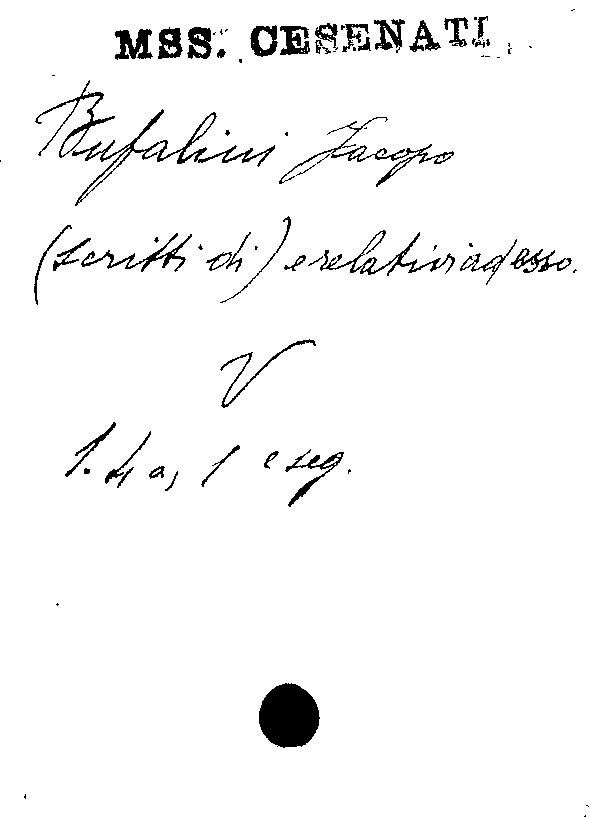 MSS. CESENATI
Bufalini Jacopo
(scritti di) e relativi ad esso.
V
1. 4 a, 1 e seg.